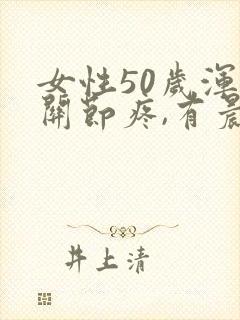 女性50歲渾
關節疼,有晨
井上清